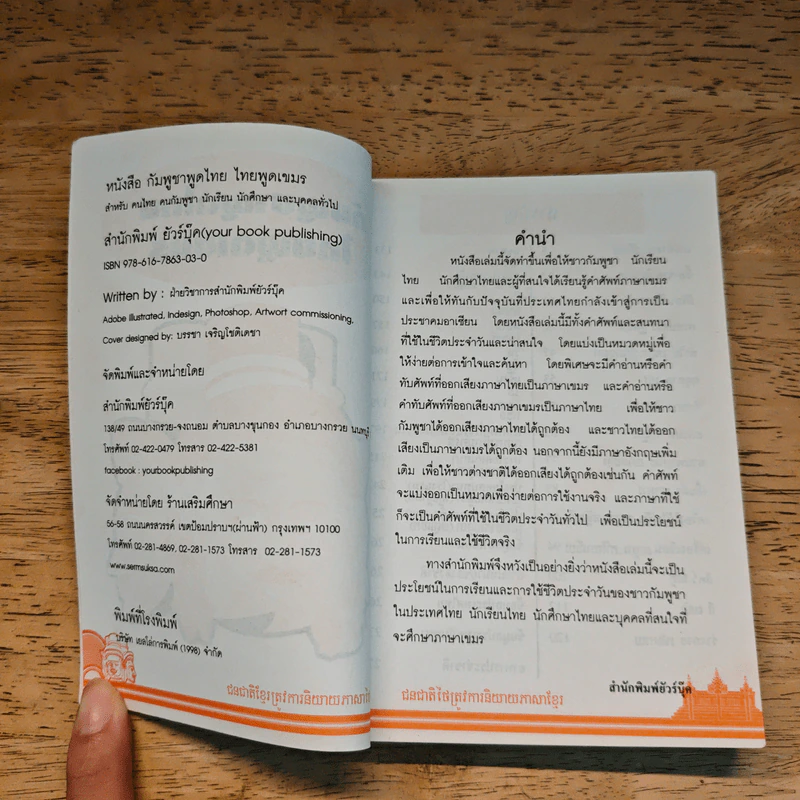 หนังสือ กัมพูชาพูดไทย ไทยพูดเขมร
สำหรับ คนไทย คนกัมพูชา นักเรียน นักศึกษา และบุคคลทั่วไป
สำนักพิมพ์ ยัวร์บุ๊ค(your book publishing)
ISBN 978-616-7863-03-0
Written by : ฝ่ายวิชาการสำนักพิมพ์ยัวร์บุ๊ค
Adobe illustrated, Indesign, Photoshop, Artwort commissioning,
Cover designed by: บรรชา เจริญโชติเดชา
จัดพิมพ์และจำหน่ายโดย
สำนักพิมพ์ยัวร์บุ๊ค
138/49 ถนนบางกรวย-จงถนอม ตำบลบางขุนกอง อำเภอบางกรวย นนทบุรี
โทรศัพท์ 02-422-0479 โทรสาร 02-422-5381
facebook : yourbookpublishing
จัดจำหน่ายโดย ร้านเสริมศึกษา
56-58 ถนนนครสวรรค์ เขตป้อมปราบฯ(ผ่านฟ้า) กรุงเทพฯ 10100
โทรศัพท์ 02-281-4869, 02-281-1573 โทรสาร 02-281-1573
www.sermsuksa.com
พิมพ์ที่โรงพิมพ์
บริษัท เยลโล่การพิมพ์ (1998) จำกัด
ជនជាតិខ្មែរត្រូវការនិយាយភាសាថៃ
คำนำ
หนังสือเล่มนี้จัดทำขึ้นเพื่อให้ชาวกัมพูชา นักเรียน
ไทย นักศึกษาไทยและผู้ที่สนใจได้เรียนรู้คำศัพท์ภาษาเขมร
และเพื่อให้ทันกับปัจจุบันที่ประเทศไทยกำลังเข้าสู่การเป็น
ประชาคมอาเซียน โดยหนังสือเล่มนี้มีทั้งคำศัพท์และสนทนา
ที่ใช้ในชีวิตประจำวันและน่าสนใจ โดยแบ่งเป็นหมวดหมู่เพื่อ
ให้ง่ายต่อการเข้าใจและค้นหา โดยพิเศษจะมีคำอ่านหรือคำ
ทับศัพท์ที่ออกเสียงภาษาไทยเป็นภาษาเขมร และคำอ่านหรือ
คำทับศัพท์ที่ออกเสียงภาษาเขมรเป็นภาษาไทย เพื่อให้ชาว
กัมพูชาได้ออกเสียงภาษาไทยได้ถูกต้อง และชาวไทยได้ออก
เสียงเป็นภาษาเขมรได้ถูกต้อง นอกจากนี้ยังมีภาษาอังกฤษเพิ่ม
เติม เพื่อให้ชาวต่างชาติได้ออกเสียงได้ถูกต้องเช่นกัน คำศัพท์
จะแบ่งออกเป็นหมวดเพื่อง่ายต่อการใช้งานจริง และภาษาที่ใช้
ก็จะเป็นคำศัพท์ที่ใช้ในชีวิตประจำวันทั่วไป เพื่อเป็นประโยชน์
ในการเรียนและใช้ชีวิตจริง
ทางสำนักพิมพ์จึงหวังเป็นอย่างยิ่งว่าหนังสือเล่มนี้จะเป็น
ประโยชน์ในการเรียนและการใช้ชีวิตประจำวันของชาวกัมพูชา
ในประเทศไทย นักเรียนไทย นักศึกษาไทยและบุคคลที่สนใจที่
จะศึกษาภาษาเขมร
สำนักพิมพ์ยัวร์บุ๊ค
ជនជាតិថៃត្រូវការនិយាយភាសាខ្មែរ